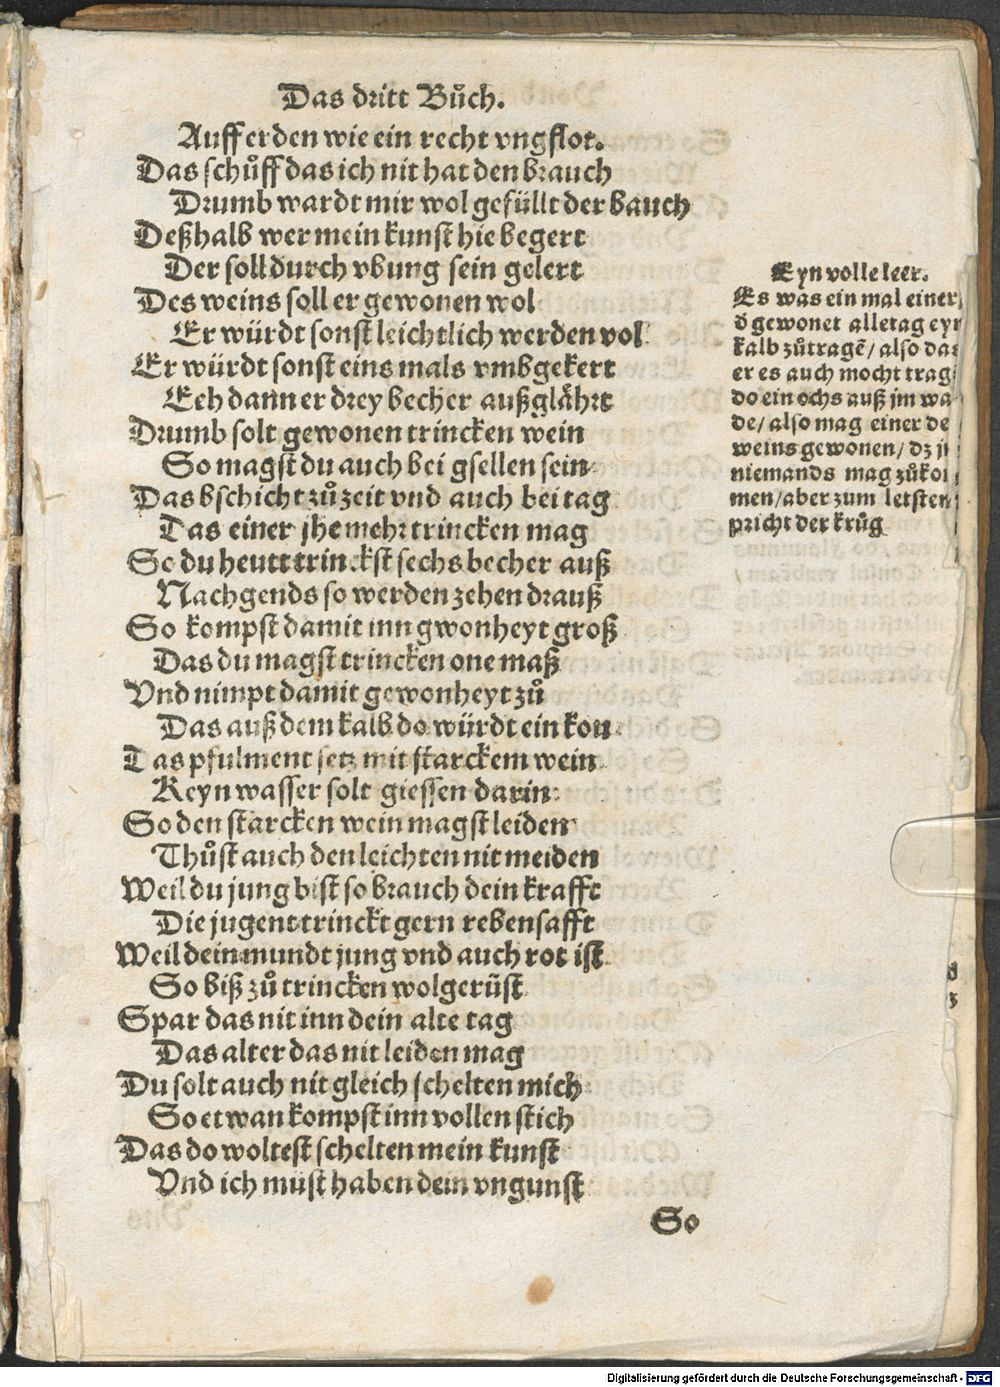 Das dritt Bůch.
Auff erden wie ein recht vngflot.
Das schůff das ich nit hat den brauch
Drumb wardt mir wol gefüllt der bauch
Deßhalb wer mein kunst hie begert
Der soll durch vbung sein gelert
Des weins soll er gewonen wol
Er würdt sonst leichtlich werden vol
Er würdt sonst eins mals vmbgekert
Eeh dann er drey becher außglåhrt
Drumb solt gewonen trincken wein
So magst du auch bei gsellen sein
Das bschicht zů zeit vnd auch bei tag
Das einer jhe mehr trincken mag
So du heutt trinckst sechs becher auß
Nachgends so werden zehen drauß
So kompst damit inn gwonheyt groß
Das du magst trincken one maß
Vnd nimpt damit gewonheyt zů
Das auß dem kalb do würdt ein kou
Das pfulment setz mit starckem wein
Keyn wasser solt giessen darin
So den starcken wein magst leiden
Thůst auch den leichten nit meiden
Weil du jung bist so brauch dein krafft
Die jugent trinckt gern rebensafft
Weil dein mundt jung vnd auch rot ist
So biß zů trincken wolgerüst
Spar das nit inn dein alte tag
Das alter das nit leiden mag
Du solt auch nit gleich schelten mich
So etwan kompst inn vollen stich
Das do woltest schelten mein kunst
Vnd ich müst haben dein vngunst
So
Eyn volle leer.
Es was ein mal einer
d gewonet alletag eyn
kalb zůtragē / also das
er es auch mocht trag
do ein ochs auß jm wa
de / also mag einer de
weins gewonen / dz
niemands mag zůko
men / aber zum letsten
pricht der krůg